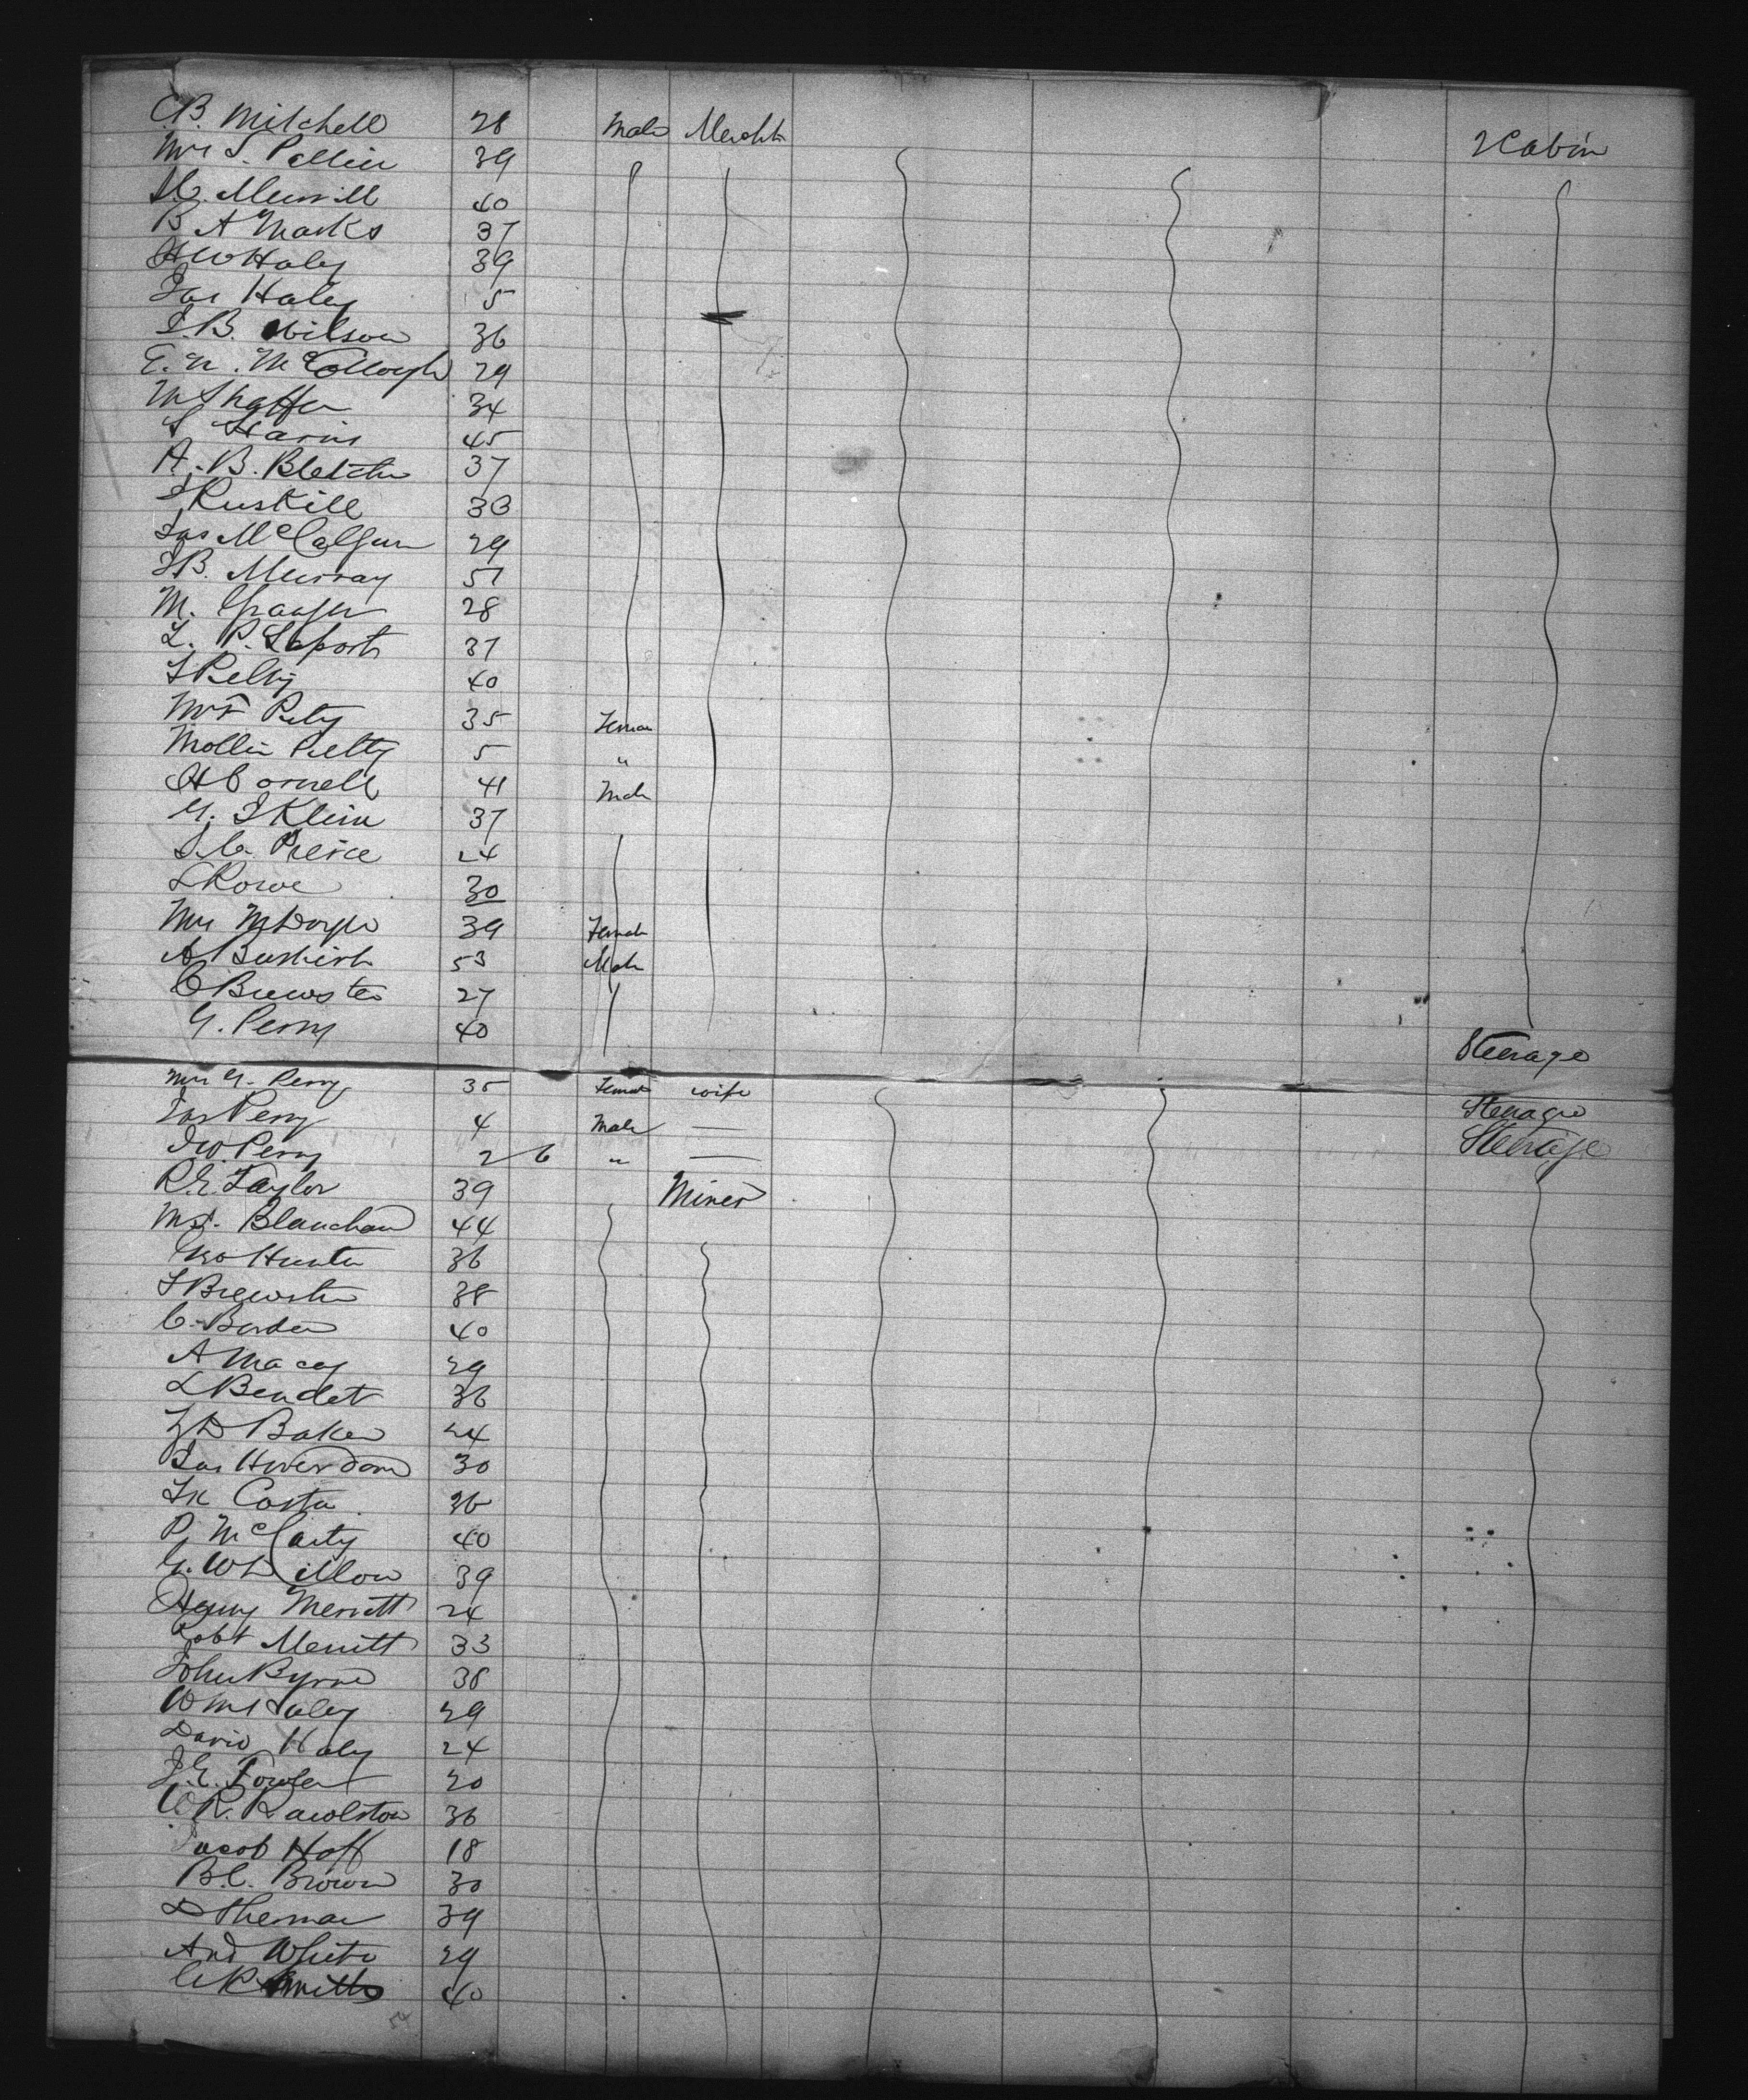 C.B. Mitchell 28 Male Mercht 2 Cabin
Mr S. Pellier 39
Merrill 40
B A Marks 37
H W Haley 39
Jas Haley 5
J.B. Wilson 36
E. N. McCollough 29
M Shaffer 34
S Harris 45
A. B. Bletcher 37
J Ruskill 33
Jas McCalgun 29
J B. Murray 51
M. Granger 28
L. P. Laport 31
J Pelly 40
Mrs Petty 35 Female
Mollie Petty 5 "
H Cornell 41 Male
G. J Klein 37
S. C. Pierce 24
L Rowe 30
Mrs M Doyle 39 Female
A Buskirk 53 Male
C Brewster 27
G. Perry 40 Steerage
Mrs G. Perry 35 Female wife Steerage
Jas Perry 4 Male — Steerage
J W. Perry 2 6 " —
R. E. Taylor 39 Miner
M S. Blanchard 44
Geo Hunter 36
J Brewster 38
C. Borden 40
A Macey 29
L Bendet 36
L D Baker 24
Jas Heverdom 30
Costa 26
P. McCarty 40
G. W Dillow 39
Henry Merritt 24
Robt Merritt 33
John Byrne 38
Wm Haley 29
David Haley 24
J. E. Fowler 20
W R. Rawlston 36
Jacob Hoff 18
B. C. Brown 30
D Sherman 39
And White 29
C R Smith 40